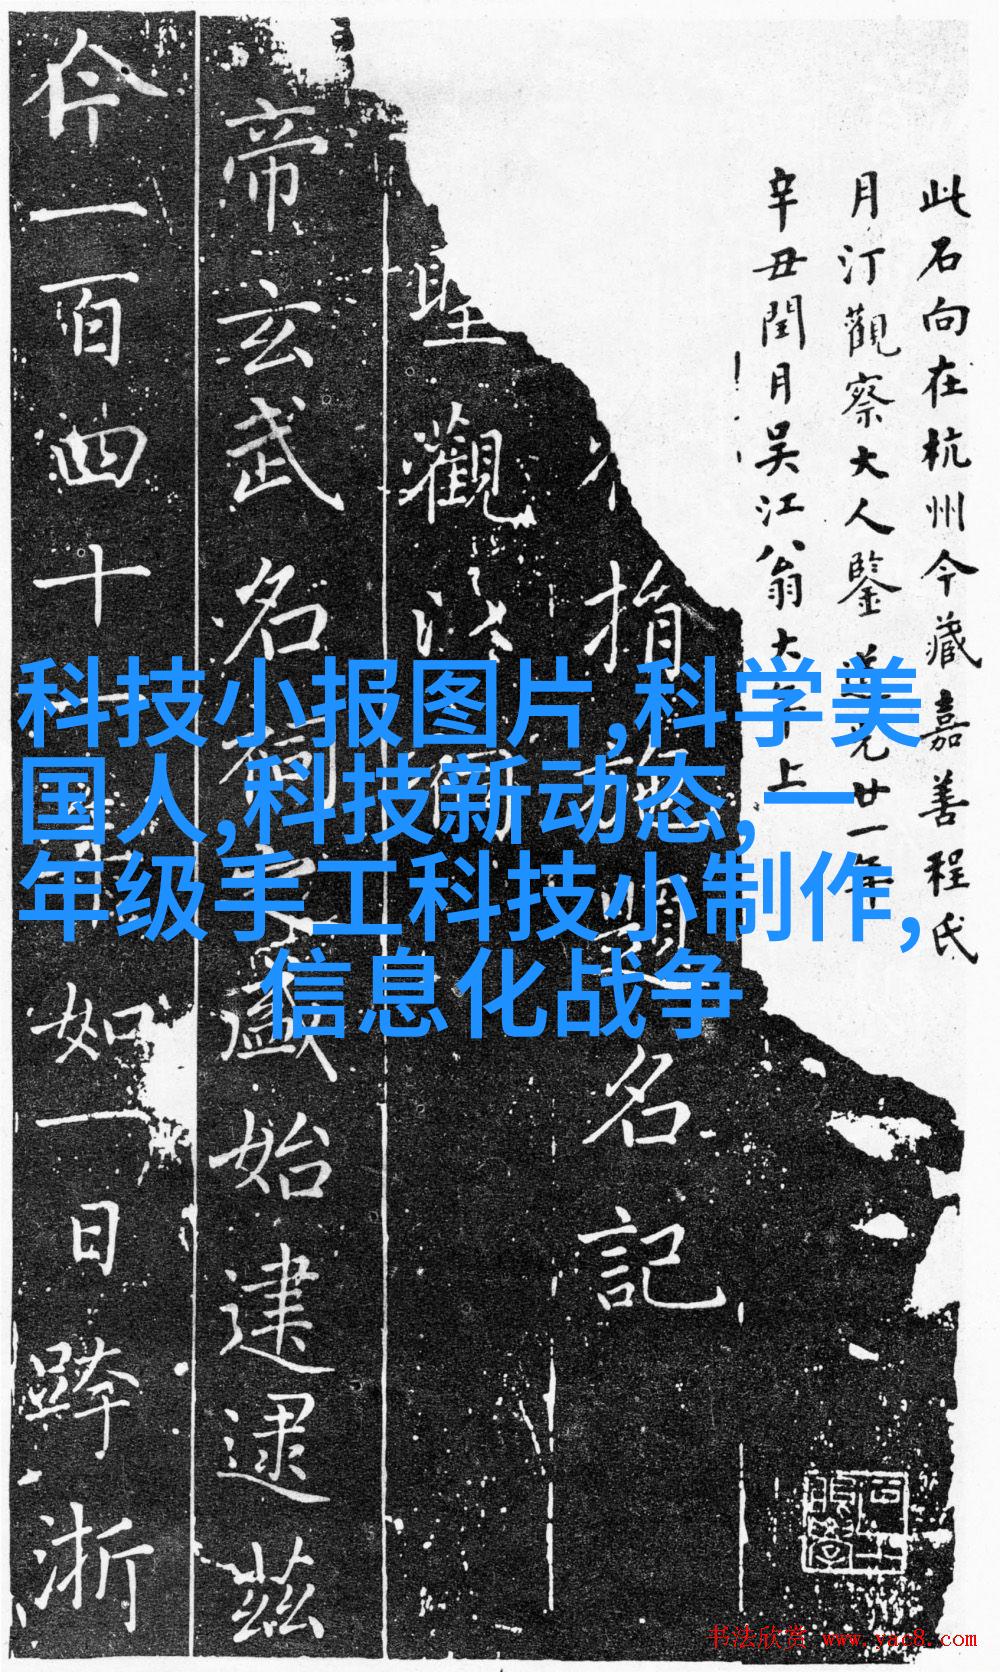 此石向在杭州今藏嘉善程氏
月汀觀察大人鑒 道光廿一年
辛丑閏月吳江翁大年上
指 題名記
聖觀
帝玄武名祠之盛始建逮茲
今一百四十 如一日跨浙
科技小报图片,科学美
国人,科技新动态,一
年级手工科技小制作,
信息化战争
书法欣赏 www.yac8.com